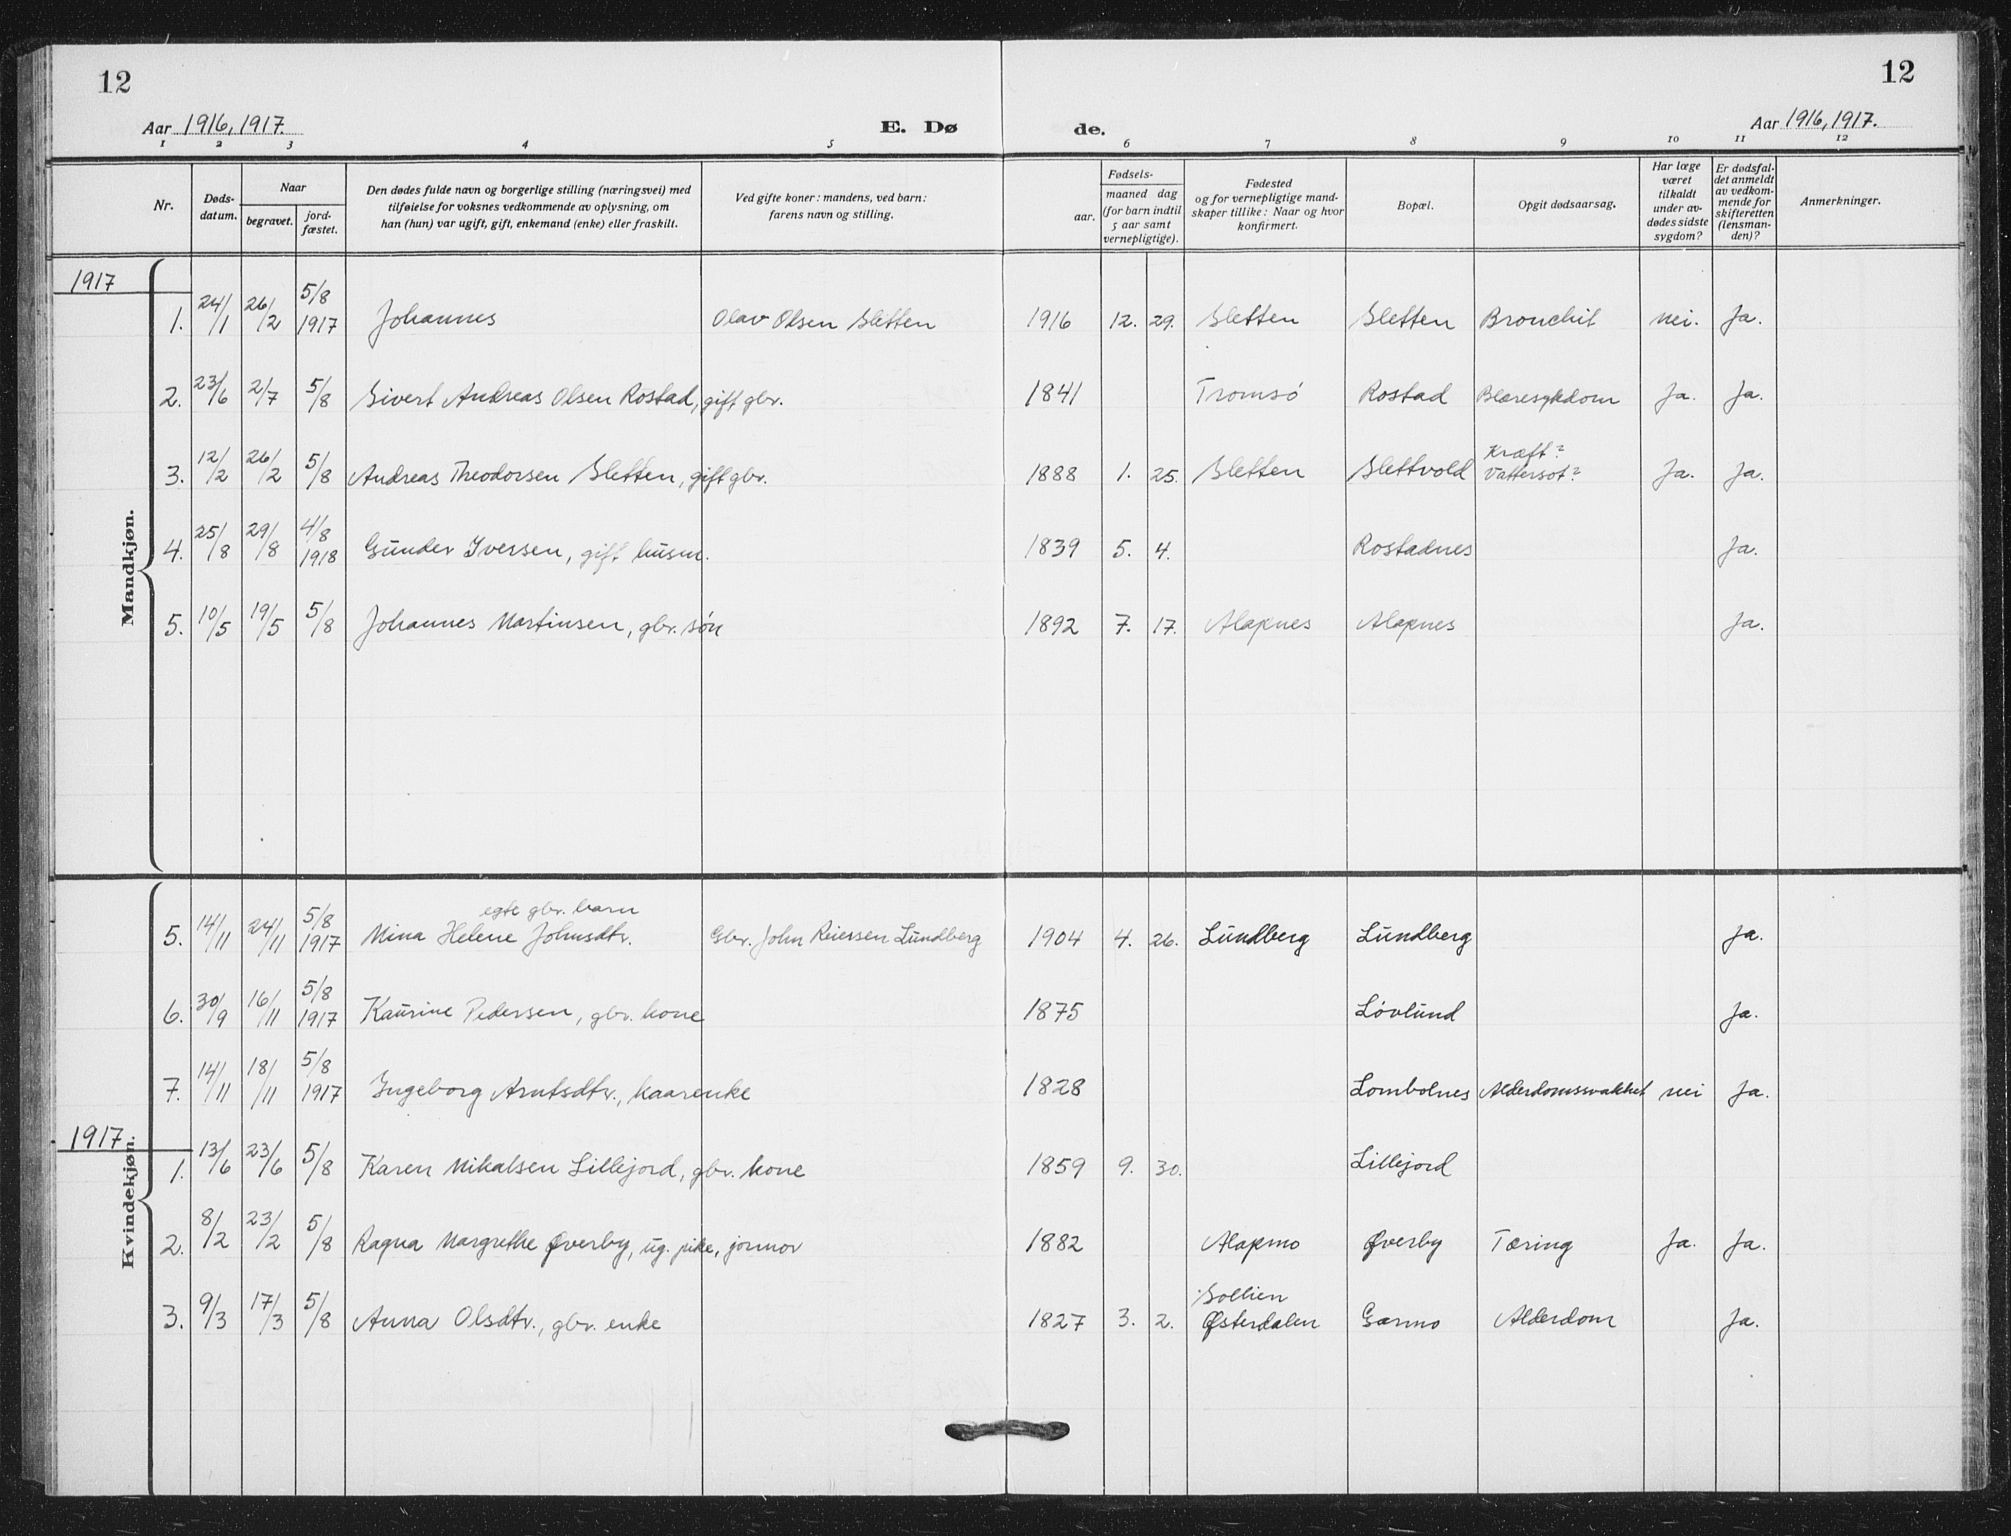 12
12
Aar 1916, 1917.
E. Dø
de.
Aar 1916, 1917.
1 2 3 4 5 6 7 8 9 10 11 12
Nr.
Døds-
datum.
Naar
begravet.
jord-
fæstet.
Den dødes fulde navn og borgerlige stilling (næringsvei) med
tilføielse for voksnes vedkommende av oplysning, om
han (hun) var ugift, gift, enkemand (enke) eller fraskilt.
Ved gifte koner: mandens, ved barn:
farens navn og stilling.
Fødsels-
aar.
maaned dag
(for barn indtil
5 aar samt
vernepligtige).
Fødested
og for vernepligtige mand-
skaper tillike: Naar og hvor
konfirmert.
Bopæl.
Opgit dødsaarsag.
Har læge
været
tilkaldt
under av-
dødes sidste
sygdom?
Er dødsfal-
det anmeldt
av vedkom-
mende for
skifteretten
(lensman-
den)?
Anmerkninger.
1917
Mandkjøn.
1. 24/1 26/2 5/8 1917 Johannes Olav Olsen Sletten 1916 12. 29. Sletten Sletten Bronchit nei. Ja.
2. 23/6 2/7 5/8 Sivert Andreas Olsen Rostad, gift gbr. 1841 Tromsó Rostad Blæresykdom Ja. Ja.
3. 12/2 26/2 5/8 Andreas Theodorsen Sletten, gift gbr. 1888 1. 25. Sletten Slettvold Kræft? Vattersot? Ja. Ja.
4. 25/8 29/8 4/8 1918 Gunder Iversen, gift husm. 1839 5. 4. Rostadnes Ja.
5. 10/5 19/5 5/8 Johannes Martinsen, gbr. són 1892 7. 17. Alapnes Alapnes Ja.
Kvindekjøn.
5. 14/11 24/11 5/8 1917 Mina Helene Johnsdtr. egte gbr. barn Gbr. John Reiersen Lundberg 1904 4. 26. Lundberg Lundberg Ja.
6. 30/9 16/11 5/8 1917 Kaurine Pedersen, gbr. kone 1875 Lóvlund Ja.
7. 14/11 18/11 5/8 1917 Ingeborg Arntsdtr., kaarenke 1828 Lombolnes Alderdomssvakhet nei Ja.
1917.
1. 13/6 23/6 5/8 Karen Mikalsen Lillejord, gbr. kone 1859 9. 30. Lillejord
2. 8/2 23/2 5/8 Ragna Margrethe Øverby, ug. pike, jormor 1882 Alapmo Øverby Tæring Ja. Ja.
3. 9/3 17/3 5/8 Anna Olsdtr., gbr. enke 1827 3. 2. Sollien Østerdalen Garmo Alderdom Ja.